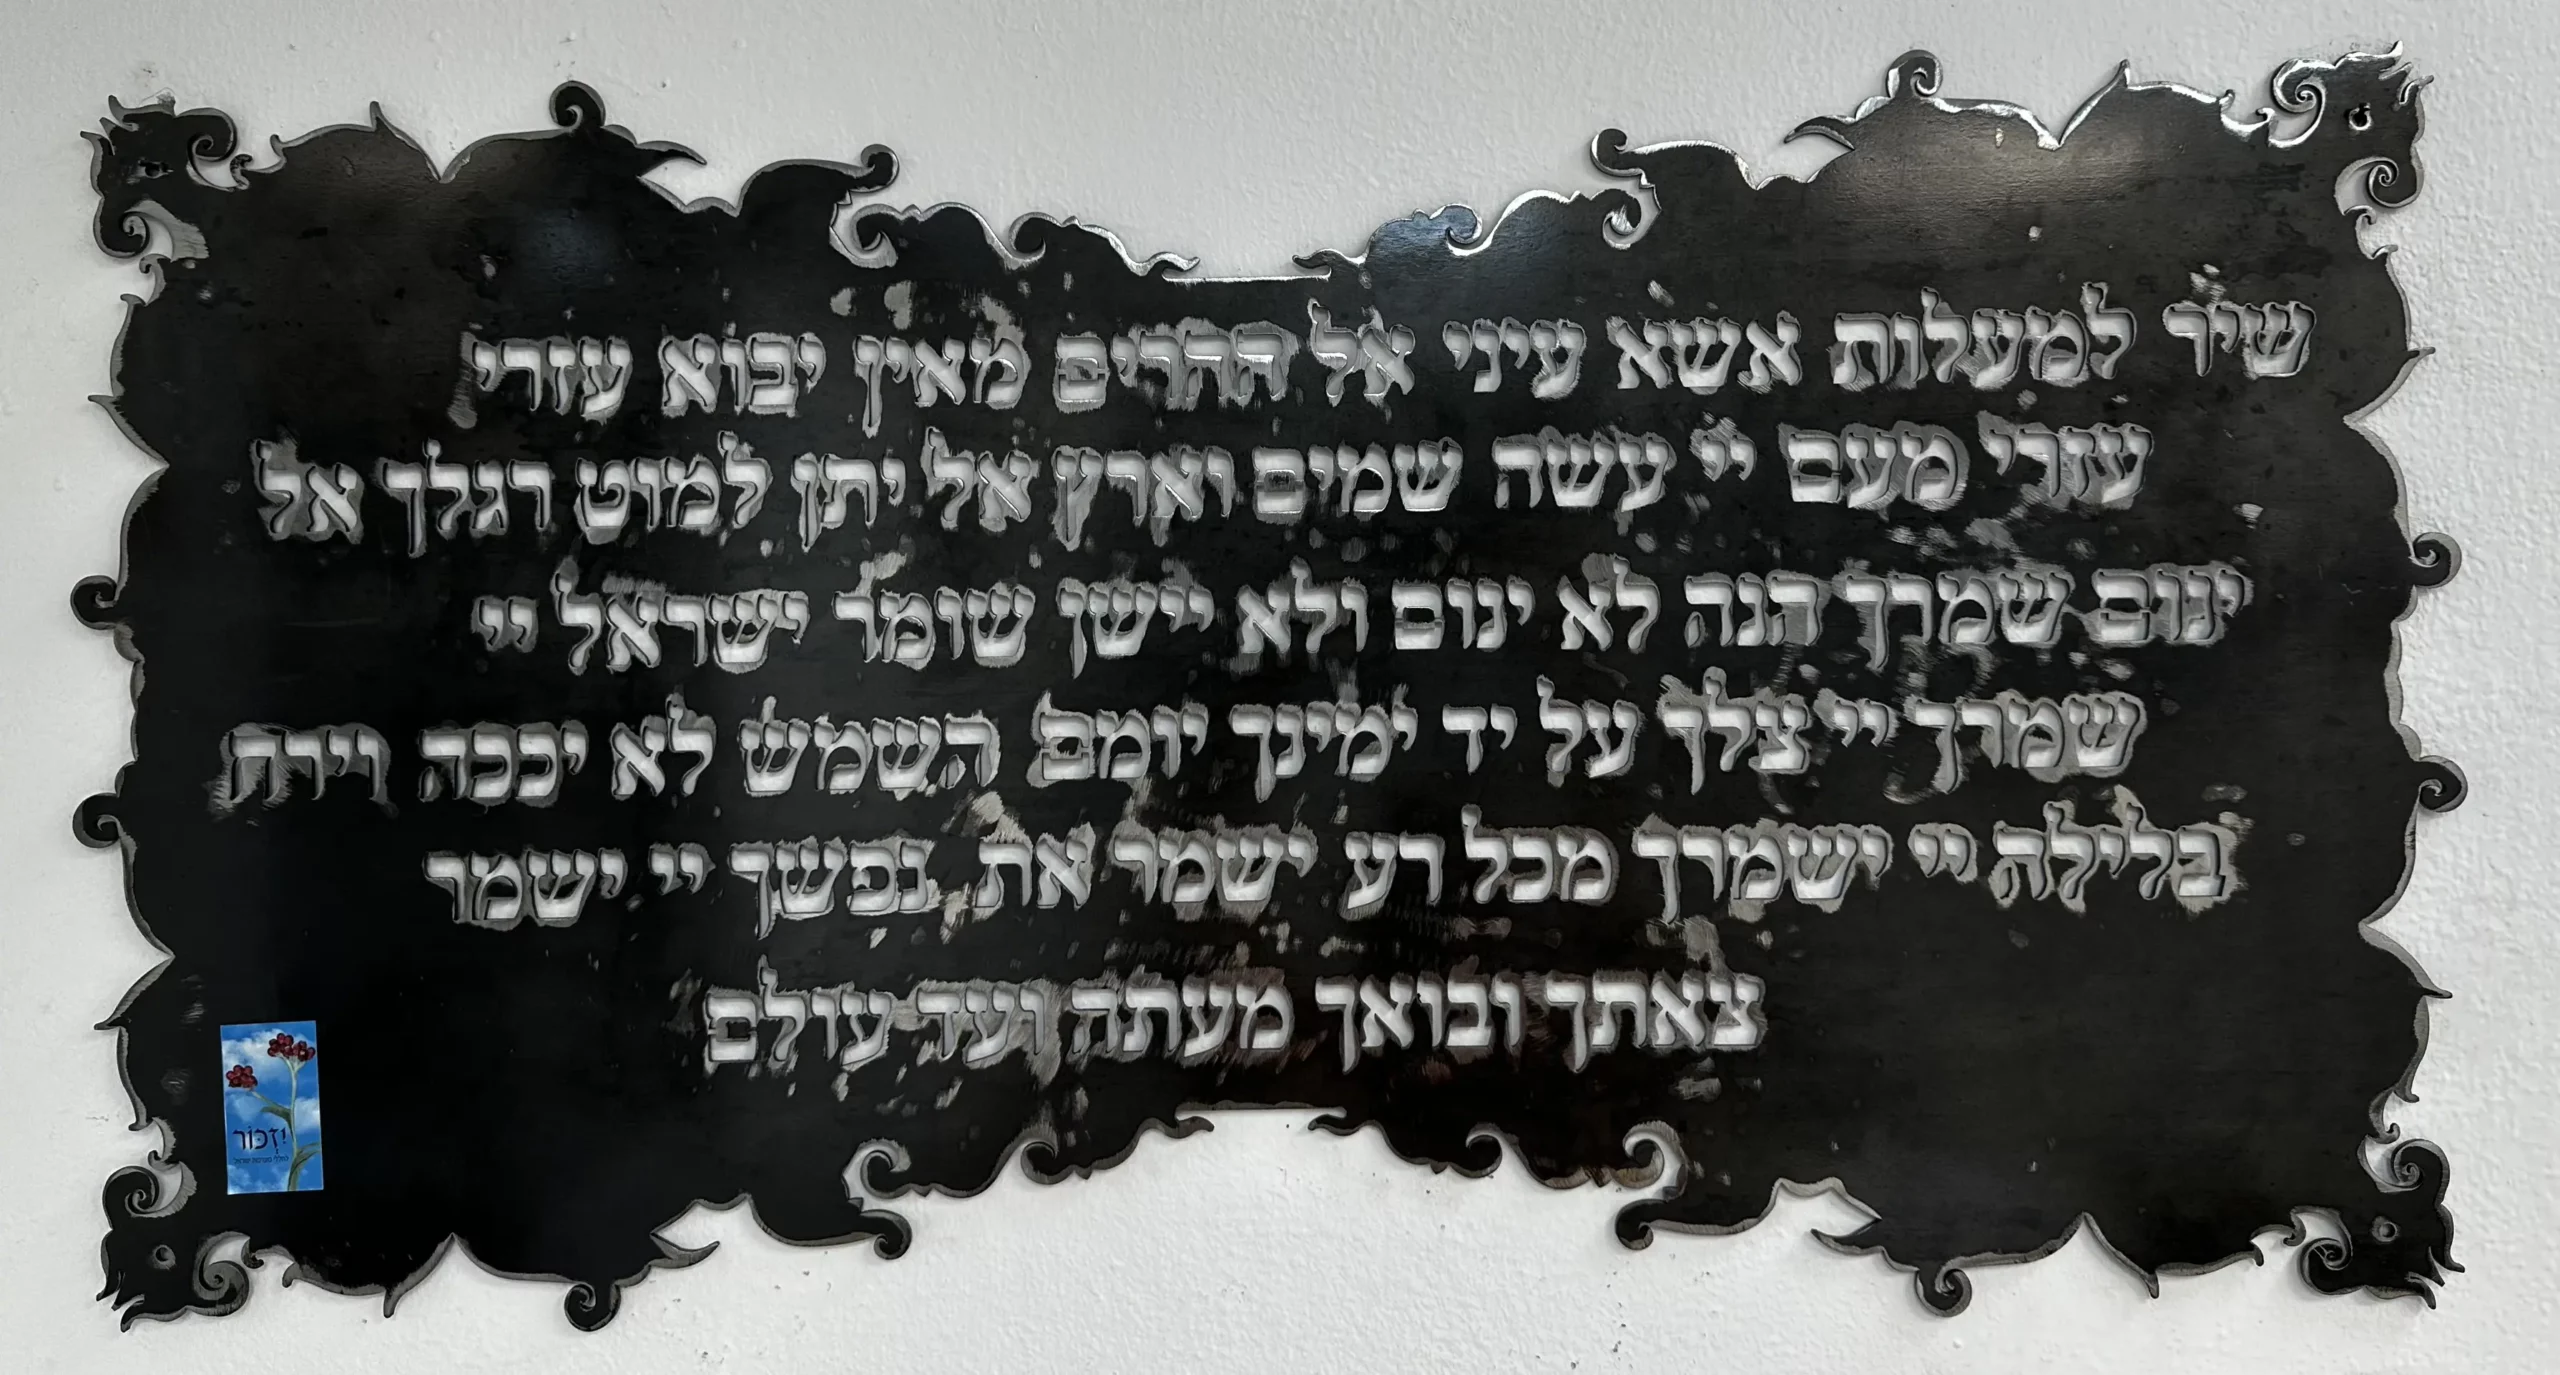 שיר למעלות אשא עיני אל ההרים מאין יבוא עזרי
עזרי מעם יי עשה שמים וארץ אל יתן למוט רגלך אל
ינום שמרך הנה לא ינום ולא יישן שומר ישראל יי
שמרך יי צלך על יד ימינך יומם השמש לא יככה וירח
בלילה יי ישמרך מכל רע ישמר את נפשך יי ישמר
צאתך ובואך מעתה ועד עולם
יזכור
לחללי מערכות ישראל